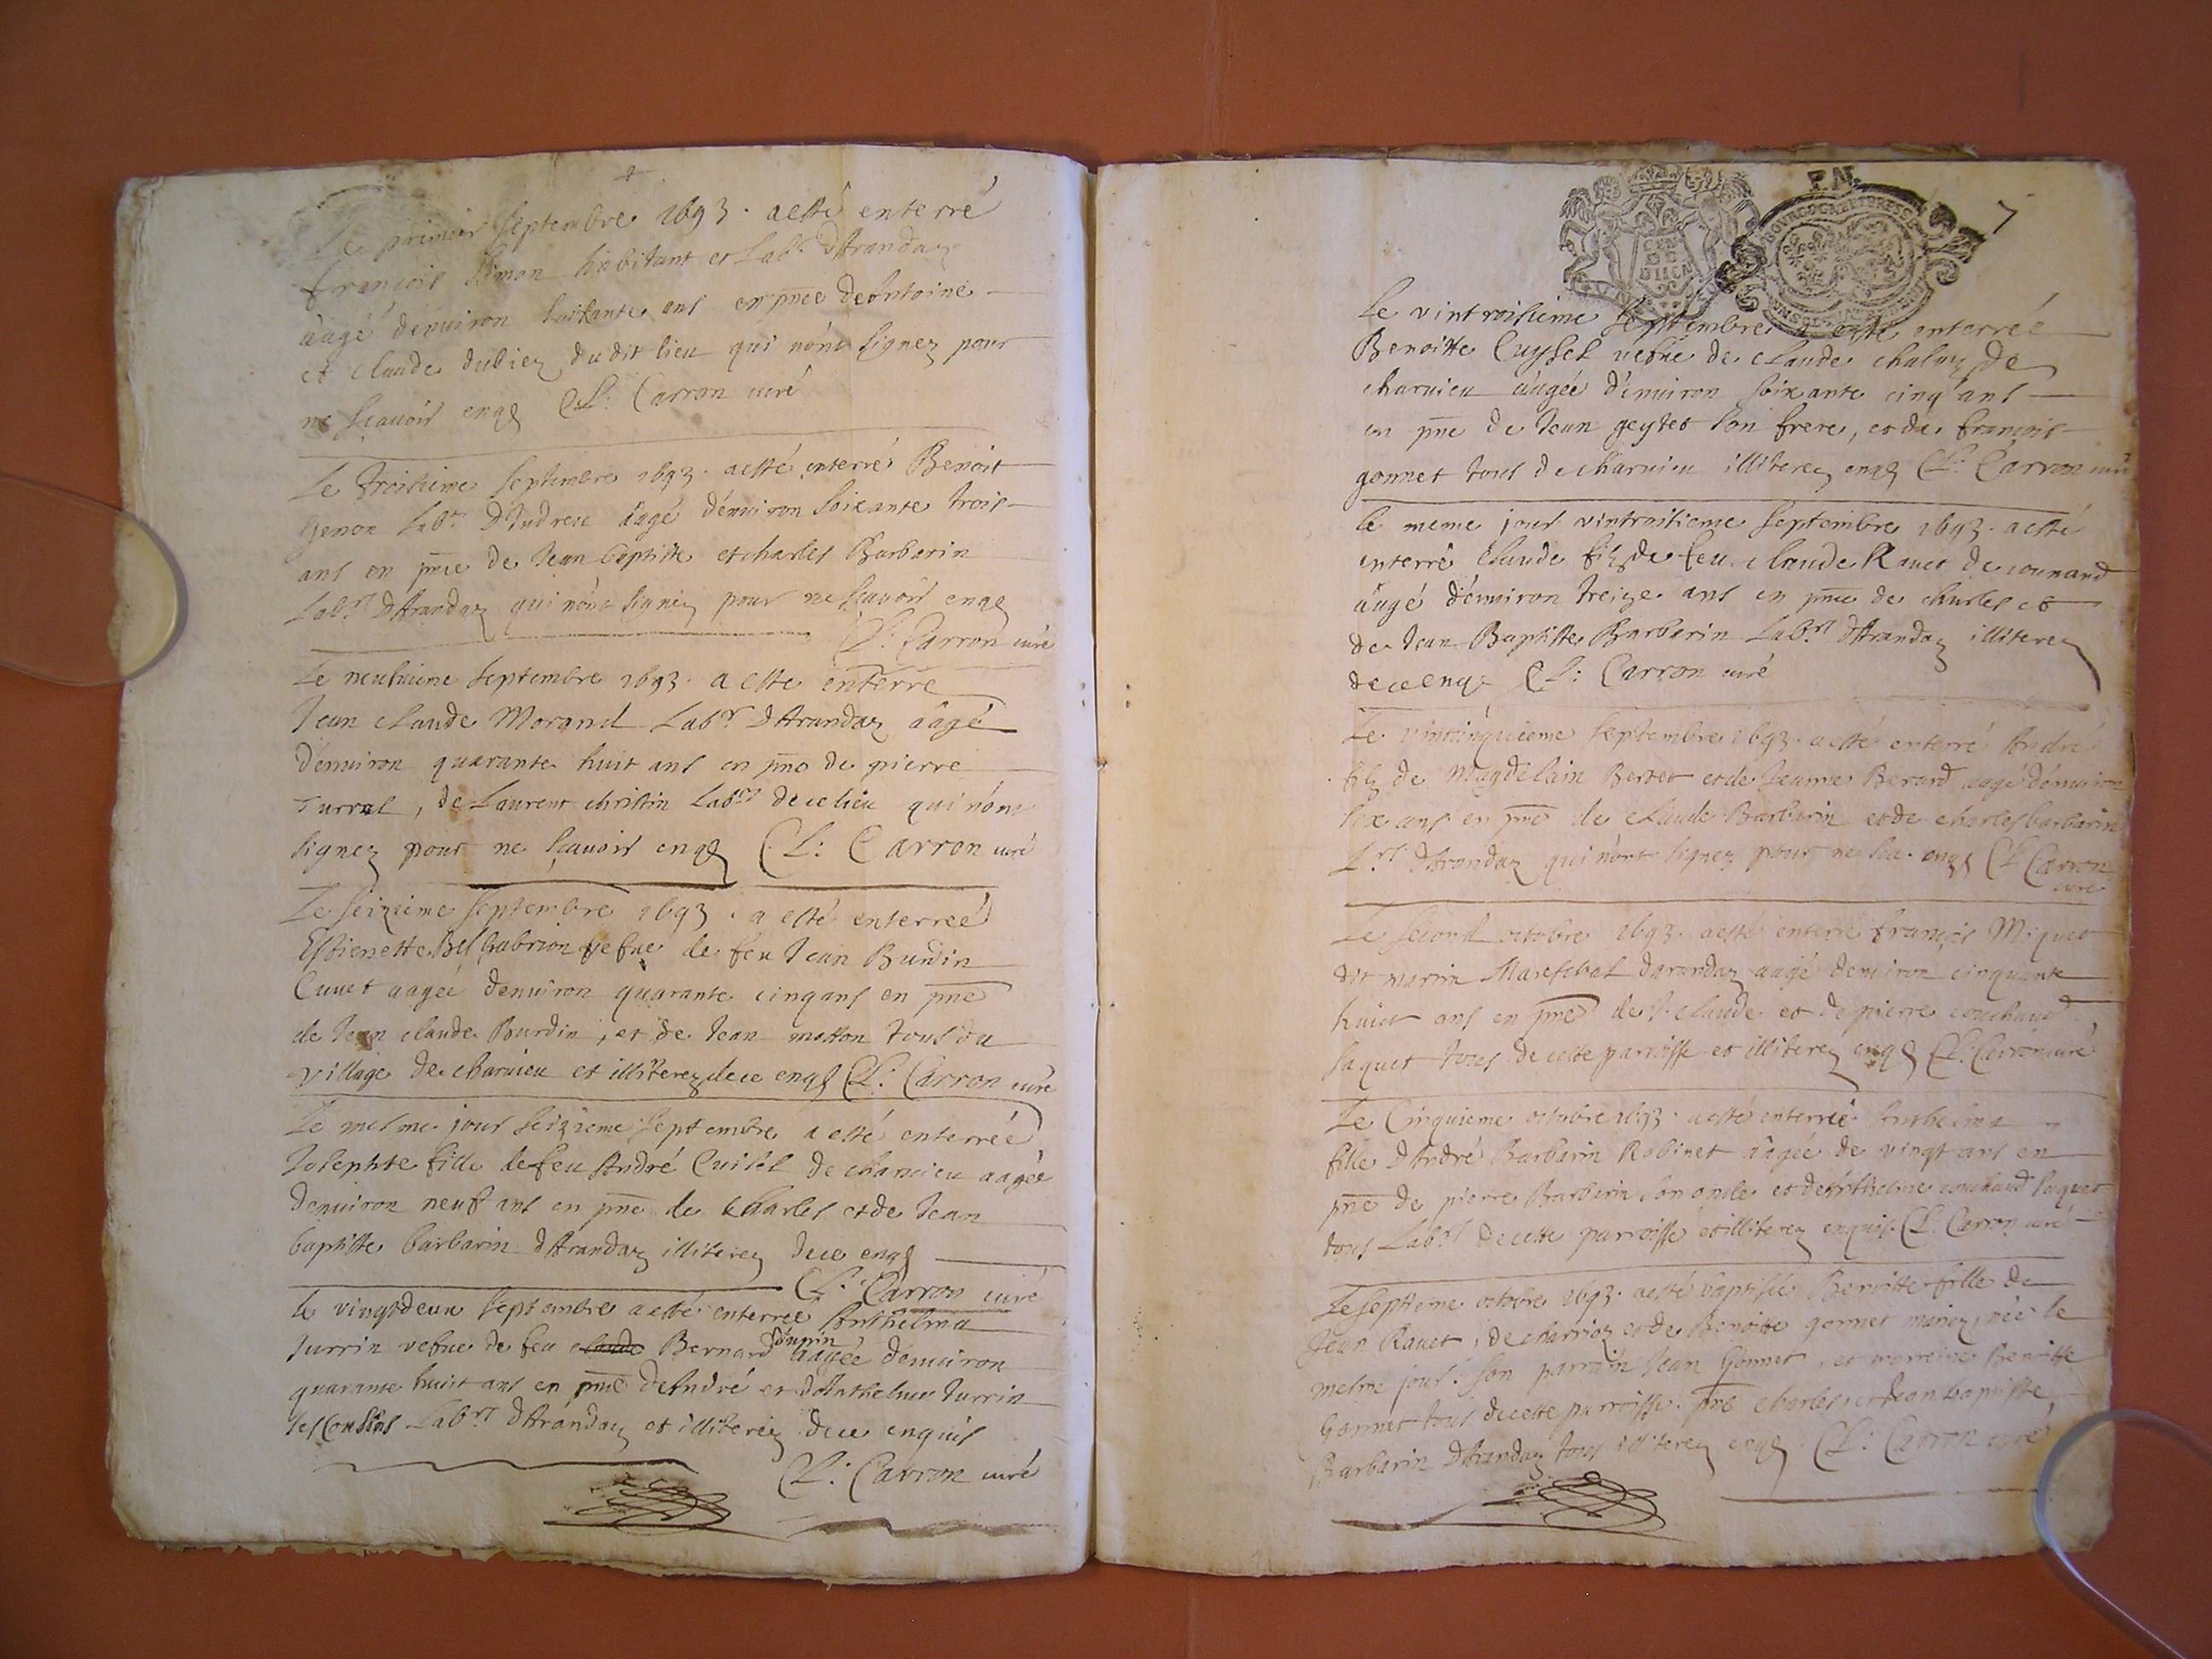 Le premier septembre 1693. a esté enterré
françois Simon habitant et Lab.r D'Arandaz
aagé denuiron soixante ans en pnce de Antoine
et claude dubiez du dit lieu qui n'ont signez pour
ne sçauoir enqs CL: Carron curé
Le troisieme septembre 1693. a esté enterré Benoit
Genon Lab.r D'Indreu aagé denuiron soixante trois
ans en pnce de Jean baptiste et charles Barbarin
Lab.rs D'Arandaz qui n'ont signez pour ne sçauoir enqs
CL: Carron curé
Le neufuieme septembre 1693. a esté enterré
Jean claude Morand Lab.r D'Arandaz aagé
d'enuiron quarante huit ans en pnce de pierre
Turral, de Laurent christin Lab.rs de ce lieu qui n'ont
signez pour ne sçauoir enqs CL: Carron curé
Le seizieme septembre 1693. a esté enterreé
Estienette Gabrion vefue de feu Jean Burdin
Cuuet aageé denuiron quarante cinq ans en pnce
de Jean claude Burdin, et de Jean motton tous du
village de charuieu et illiterez de ce enqs CL: Carron curé
Le mesme jour seizieme septembre a esté enterreé
Josephte fille de feu André Cuisel de charuieu aageé
denuiron neuf ans en pnce de Charles et de Jean
baptiste barbarin d'Arandaz illiterez de ce enqs
CL: Carron curé
Le vingtdeux septembre a esté enterreé Anthelma
Jurrin vefue de feu claude Bernard aageé denuiron
quarante huit ans en pnce de André et d'Anthelme Jurrin
ses cousins Lab.rs d'Arandaz et illiterez de ce enquis
CL: Carron curé
P.N.
7
Le vintroisieme septembre a esté enterreé
Benoitte Cuyssel vefue de claude chaluz de
charuieu aagée d'enuiron soixante cinq ans
en pnce de Jean geytet son frere, et de françois
gonnet tous de charuieu illiterez enqs CL: Carron curé
le meme jour vintroisieme septembre 1693. a esté
enterré claude filz de feu claude Rauet de counand
aagé d'enuiron treize ans en pnce de charles et
de Jean Baptiste Barbarin Lab.rs d'Arandaz illiterez
de ce enqs CL: Carron curé
Le vintcinquieme septembre 1693. a esté enterré André
filz de Magdelain Bertet et de Jeanne Berard aagé denuiron
six ans en pnce de claude Barbarin et de charles barbarin
L.rs d'Arandaz qui n'ont signez pour ne sça. enqs CL Carron
curé
Le second octobre 1693. a esté enterré françois Miquet
dit martin Mareschal darandaz aagé denuiron cinquante
huict ans en pnce de claude et de pierre couchaud
saquet tous de cette parroisse et illiterez enqs CL: Carron curé
Le Cinquieme octobre 1693. a esté enterreé Anthelma
fille D'André Barbarin Robinet aageé de vingt ans en
pnce de pierre Barbarin son oncle et de Anthelme couchaud saquet
tous Lab.rs de cette parroisse et illiterez enquis CL: Carron curé
Le septieme octobre 1693. a esté baptiseé Benoitte fille de
Jean Rauet, de charrioz et de Benoitte gonnet mariez, neé le
mesme jour. son parrain Jean Gonnet, et marreine Benoitte
Gonnet tous de cette parroisse. pnce charles, et Jean baptiste
Barbarin D'Arandaz tous illiterez enqs CL: Carron curé